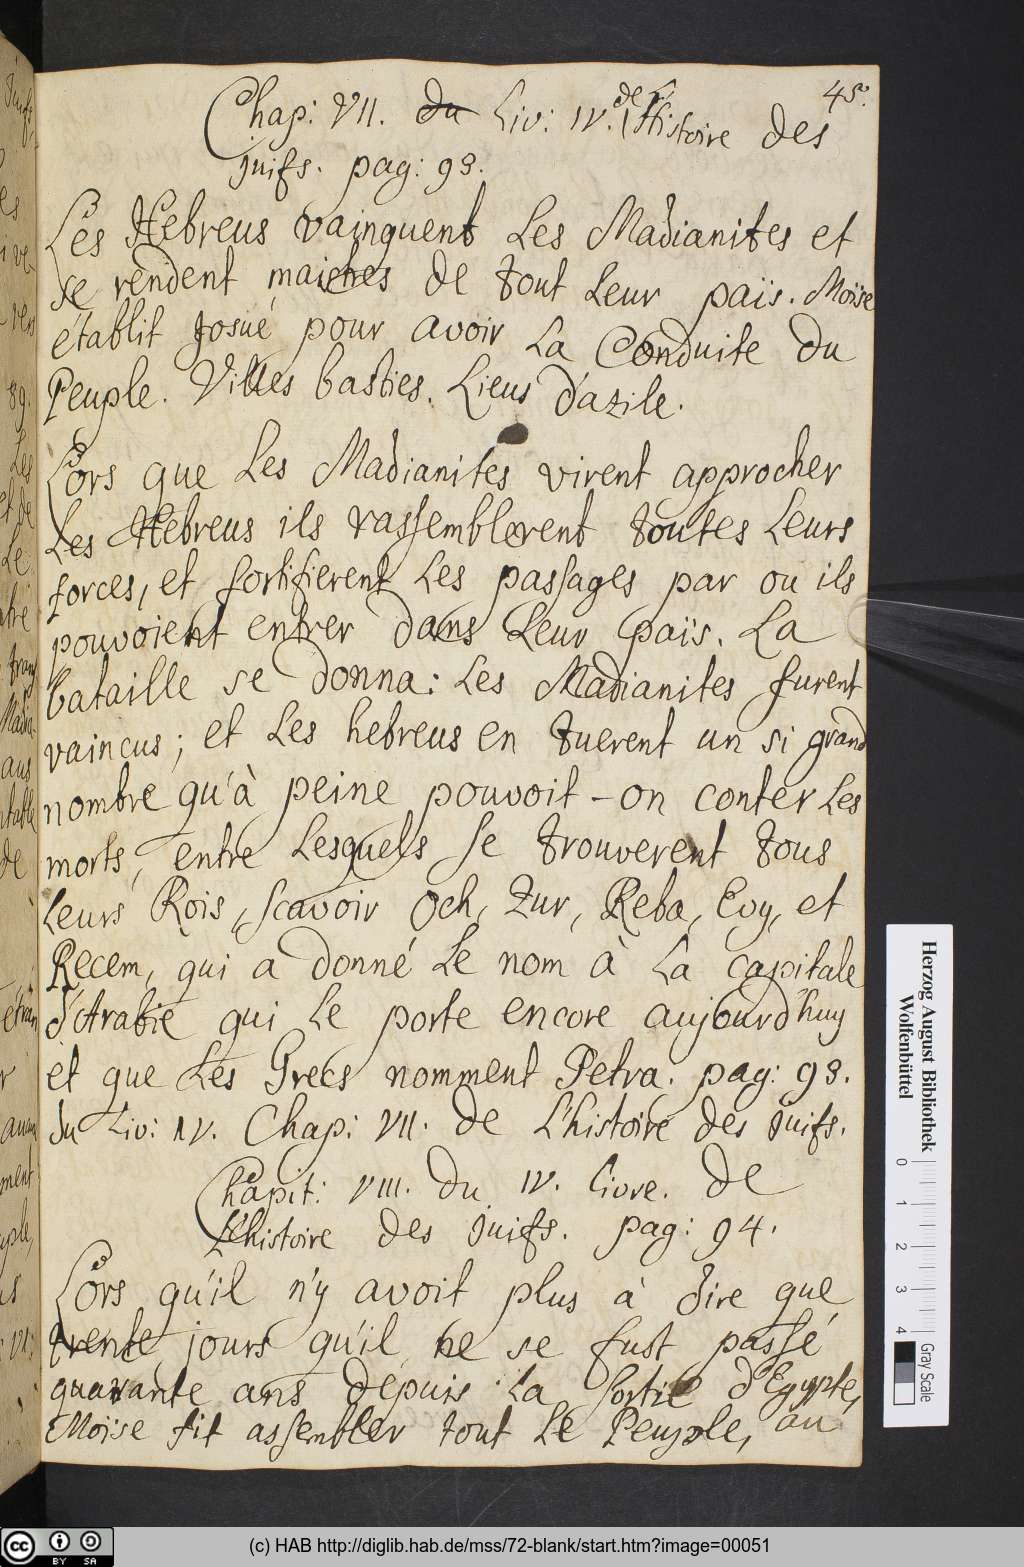 45.
Chap: VII. du Liv: IV. de l'Histoire des
juifs. pag: 93.
Les Hebreus vainquent Les Madianites et
se rendent maistres de tout Leur païs. Moïse
établit Josué pour avoir La Conduite du
Peuple. Villes basties. Lieus d'azile.
Lors que Les Madianites virent approcher
Les Hebreus ils rassemblerent toutes Leurs
forces, et fortifierent Les passages par ou ils
pouvoient entrer dans Leur païs. La
bataille se donna: Les Madianites furent
vaincus; et Les hebreus en tuerent un si grand
nombre qu'à peine pouvoit-on conter Les
morts, entre Lesquels se trouverent tous
Leurs Rois, scavoir Och, Zur, Reba, Evy, et
Recem, qui a donné Le nom à La capitale
d'Arabie qui Le porte encore aujourd'huy
et que Les Grecs nomment Petra. pag: 93.
du Liv: IV. Chap: VII. de L'histoire des juifs.
Chapit: VIII. du IV. Livre. de
L'histoire des juifs. pag: 94.
Lors qu'il n'y avoit plus à dire que
trente jours qu'il ne se fust passé
quarante ans depuis La sortie d'Egypte,
Moïse fit assembler tout Le Peuple, au
Herzog August Bibliothek
Wolfenbüttel
0 1 2 3 4
Gray Scale
cc BY SA
(c) HAB http://diglib.hab.de/mss/72-blank/start.htm?image=00051